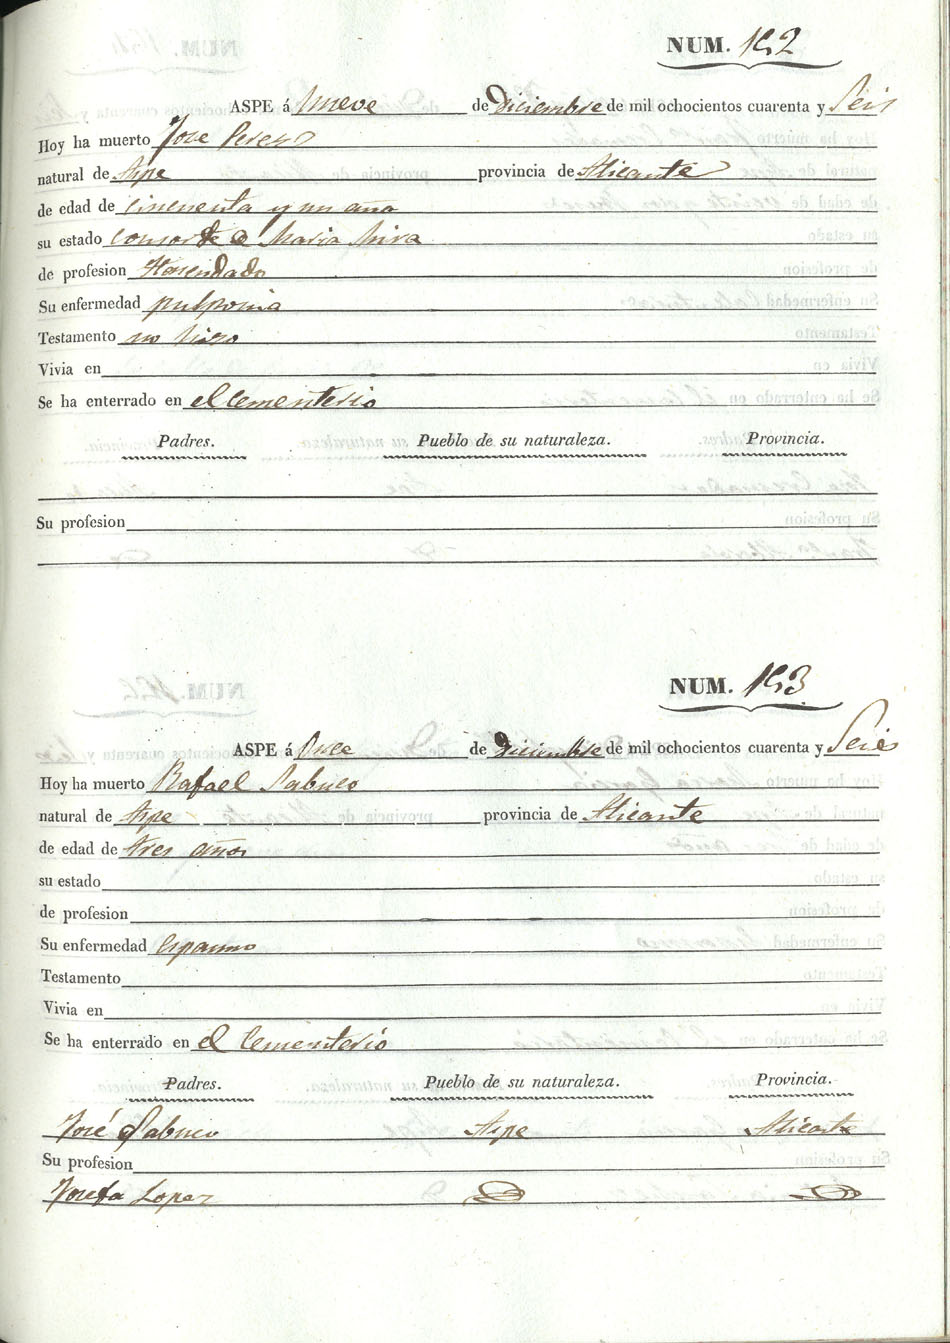 NUM. 152
ASPE á Nueve de Diciembre de mil ochocientos cuarenta y Seis
Hoy ha muerto Jose Peres
natural de Aspe provincia de Alicante
de edad de cincuenta y un año
su estado consorte de Maria Mira
de profesion Hasendado
Su enfermedad pulmonia
Testamento no hiso
Vivia en
Se ha enterrado en el Cementerio
Padres. Pueblo de su naturaleza. Provincia.
Su profesion
NUM. 153
ASPE á Onse de Diciembre de mil ochocientos cuarenta y Seis
Hoy ha muerto Rafael Pabuco
natural de Aspe provincia de Alicante
de edad de tres años
su estado
de profesion
Su enfermedad espasmo
Testamento
Vivia en
Se ha enterrado en el Cementerio
Padres. Pueblo de su naturaleza. Provincia.
José Pabuco Aspe Alicante
Su profesion
Josefa Lopez